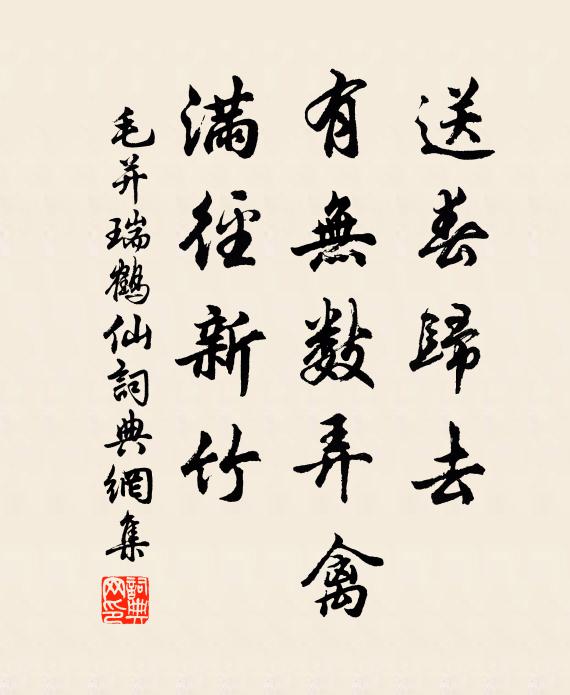 送春歸去
有無數弄禽
滿徑新竹
毛并瑞鶴仙詞典網集
詞典網印